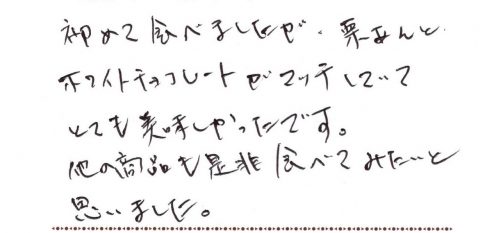 初めて食べましたが、栗あんと
ホワイトチョコレートがマッチしていて
とても美味しかったです。
他の商品も是非食べてみたいと
思いました。